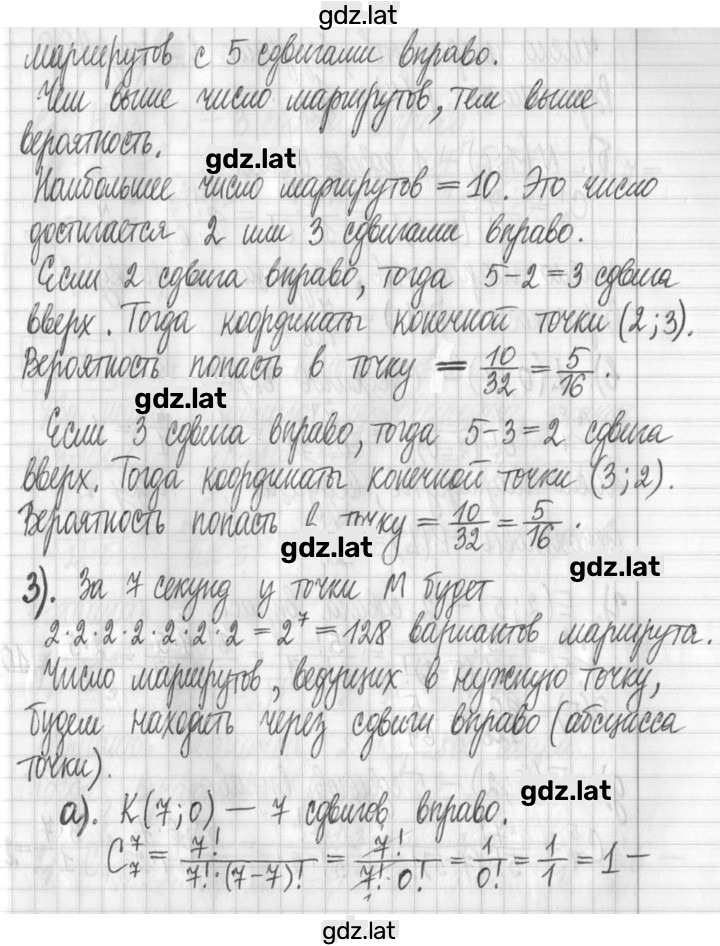 gdz.lat
маршрутов с 5 сдвигами вправо.
Чем выше число маршрутов, тем выше
вероятность.
gdz.lat
Наибольшее число маршрутов = 10. Это число
достигается 2 или 3 сдвигами вправо.
Если 2 сдвига вправо, тогда 5-2=3 сдвига
вверх. Тогда координаты конечной точки (2;3).
Вероятность попасть в точку = 10/32 = 5/16.
gdz.lat
Если 3 сдвига вправо, тогда 5-3=2 сдвига
вверх. Тогда координаты конечной точки (3;2).
Вероятность попасть в точку = 10/32 = 5/16.
gdz.lat
gdz.lat
3). За 7 секунд у точки М будет
2·2·2·2·2·2·2 = 2^7 = 128 вариантов маршрута.
Число маршрутов, ведущих в нужную точку,
будем находить через сдвиги вправо (абсцисса
точки).
gdz.lat
а). К(7;0) — 7 сдвигов вправо.
C_7^7 = 7!/(7!·(7-7)!) = 7!/(7!·0!) = 1/0! = 1/1 = 1 —
gdz.lat